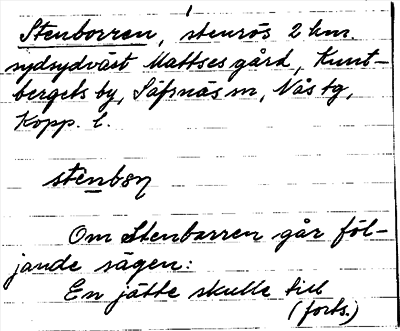 Stenborren, stenrös 2 km.
sydsydväst Mattses gård, Kunt-
bergets by, Säfsnäs sn, Nås tg,
Kopp. l.
stenbon
Om Stenborren går föl-
jande sägen:
En jätte skulle till
(forts.)